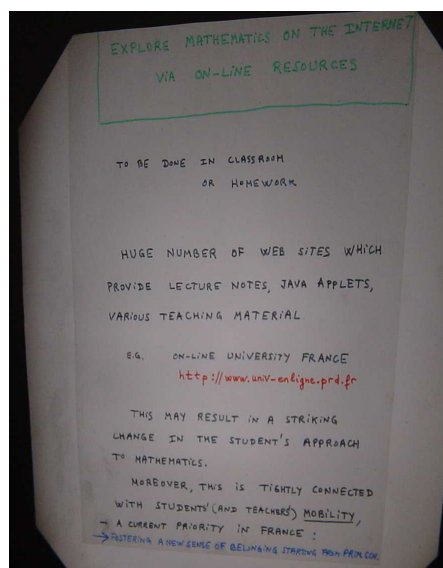 EXPLORE MATHEMATICS ON THE INTERNET
VIA ON-LINE RESOURCES
TO BE DONE IN CLASSROOM
OR HOMEWORK
HUGE NUMBER OF WEB SITES WHICH
PROVIDE LECTURE NOTES, JAVA APPLETS,
VARIOUS TEACHING MATERIAL
E.G. ON-LINE UNIVERSITY FRANCE
http://www.univ-enligne.prd.fr
THIS MAY RESULT IN A STRIKING
CHANGE IN THE STUDENT'S APPROACH
TO MATHEMATICS.
MOREOVER, THIS IS TIGHTLY CONNECTED
WITH STUDENTS' (AND TEACHERS') MOBILITY,
A CURRENT PRIORITY IN FRANCE :
→ FOSTERING A NEW SENSE OF BELONGING STARTING FROM PRIM. SCH.